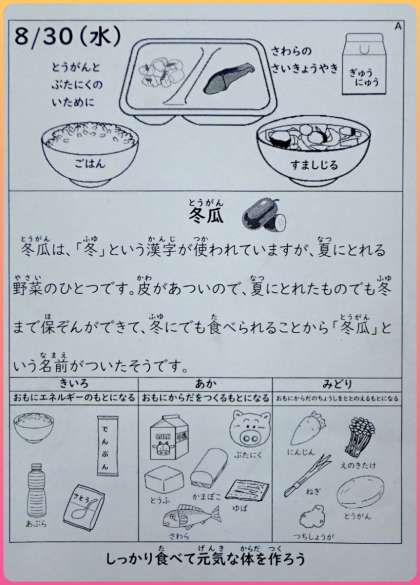 A
8/30(水)
とうがんと
ぶたにくの
いために
さわらの
さいきょうやき
ぎゅう
にゅう
ごはん
すましじる
とうがん
冬瓜
とうがん ふゆ かんじ つか なつ
冬瓜は、「冬」という漢字が使われていますが、夏にとれる
やさい かわ なつ ふゆ
野菜のひとつです。皮があついので、夏にとれたものでも冬
ほ ふゆ た とうがん
まで保ぞんができて、冬にでも食べられることから「冬瓜」と
なまえ
いう名前がついたそうです。
きいろ
おもにエネルギーのもとになる
でんぷん
あぶら
さとう
あか
おもにからだをつくるもとになる
ぶたにく
とうふ
かまぼこ
ゆば
さわら
みどり
おもにからだのちょうしをととのえるもとになる
にんじん
えのきたけ
ねぎ
とうがん
つちしょうが
た げんき からだ つく
しっかり食べて元気な体を作ろう